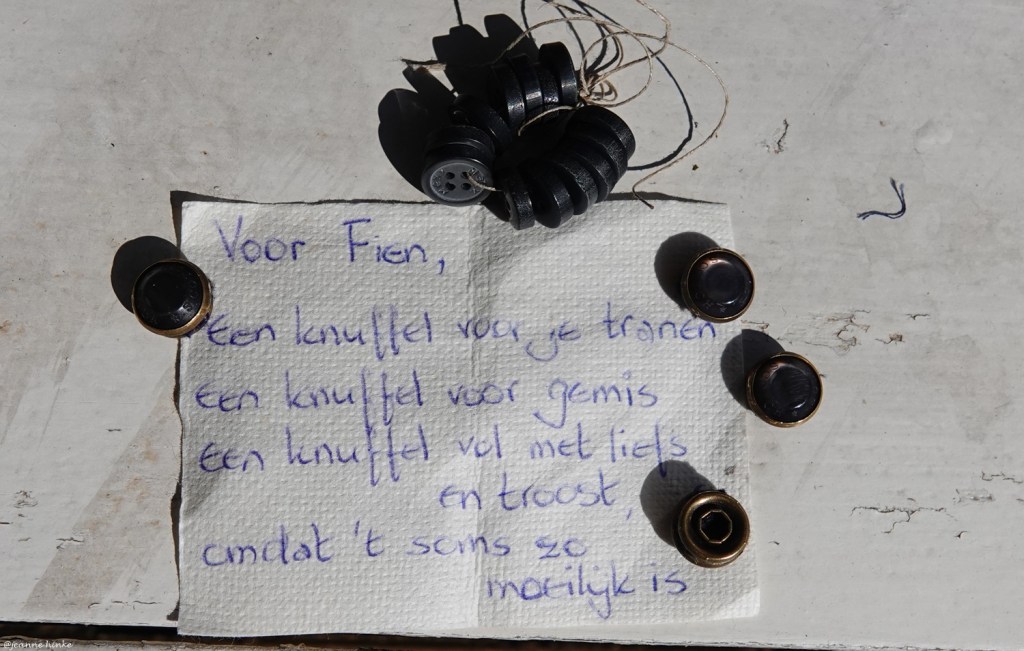 Voor Fien,
Een knuffel voor je tranen
een knuffel voor gemis
een knuffel vol met liefs
en troost,
omdat 't soms zo
moeilijk is
@jeanne henke